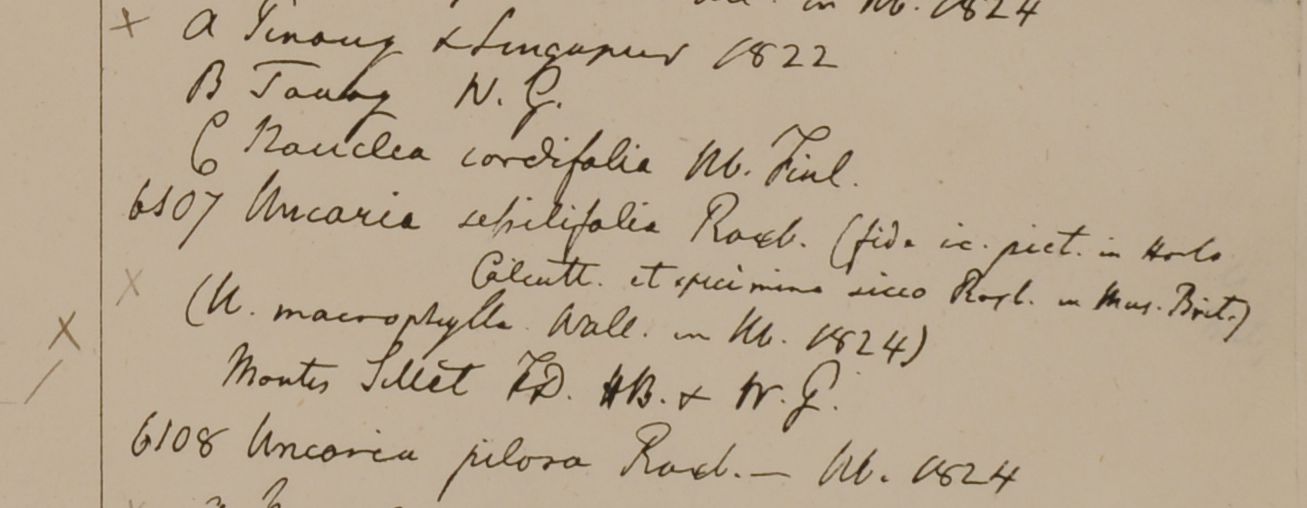 in Hb. 1824
× A Pinang & Singapur 1822
B Tavoy W. G.
C Nauclea cordifolia Hb. Finl.
6107 Uncaria sessilifolia Roxb. (fide ic. pict. in Horto
Calcutt. et specimine sicco Roxb. in Mus. Brit.)
× (U. macrophylla Wall. in Hb. 1824)
×
Montes Sillet FD. HB. & W. G.
6108 Uncaria pilosa Roxb. — Hb. 1824